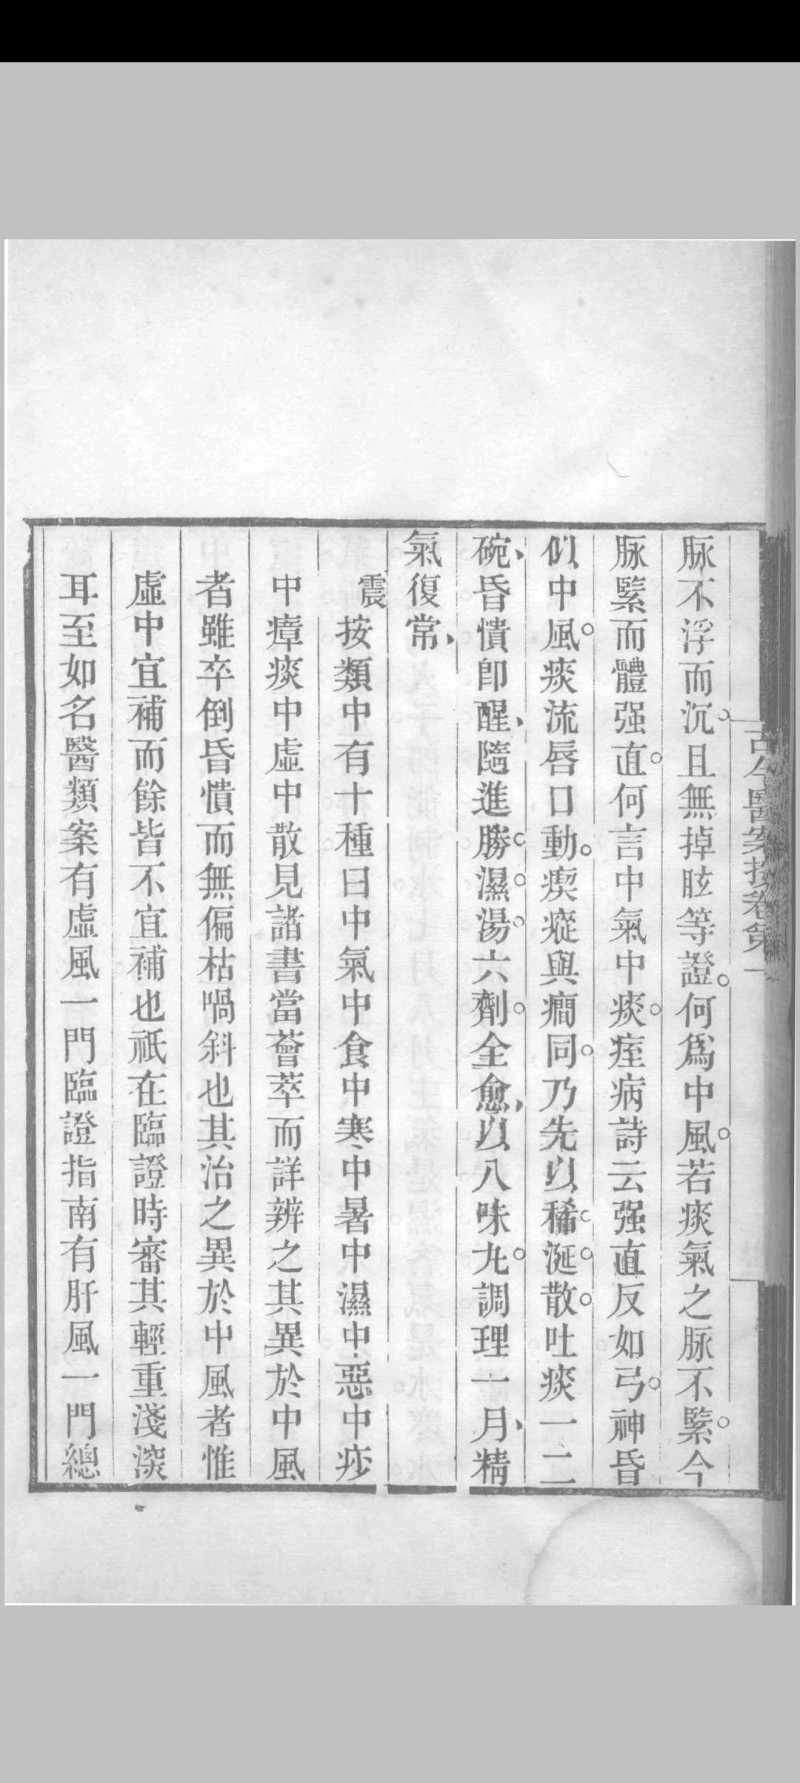 古今醫案按卷第一
脉不浮而沉。且無掉眩等證。何爲中風。若痰氣之脉不緊。今
脉緊而體强直。何言中氣中痰。痓病詩云强直反如弓。神昏
似中風。痰流唇口動。瘈瘲與癎同。乃先以稀涎散。吐痰一二
碗、昏憒卽醒、隨進勝濕湯六劑。全愈、以八味丸。調理一月、精
氣復常、
震按類中有十種曰中氣中食中寒中暑中濕中惡中痧
中瘴痰中虛中散見諸書當薈萃而詳辨之其異於中風
者雖卒倒昏憒而無偏枯喎斜也其治之異於中風者惟
虛中宜補而餘皆不宜補也祇在臨證時審其輕重淺深
耳至如名醫類案有虛風一門臨證指南有肝風一門總